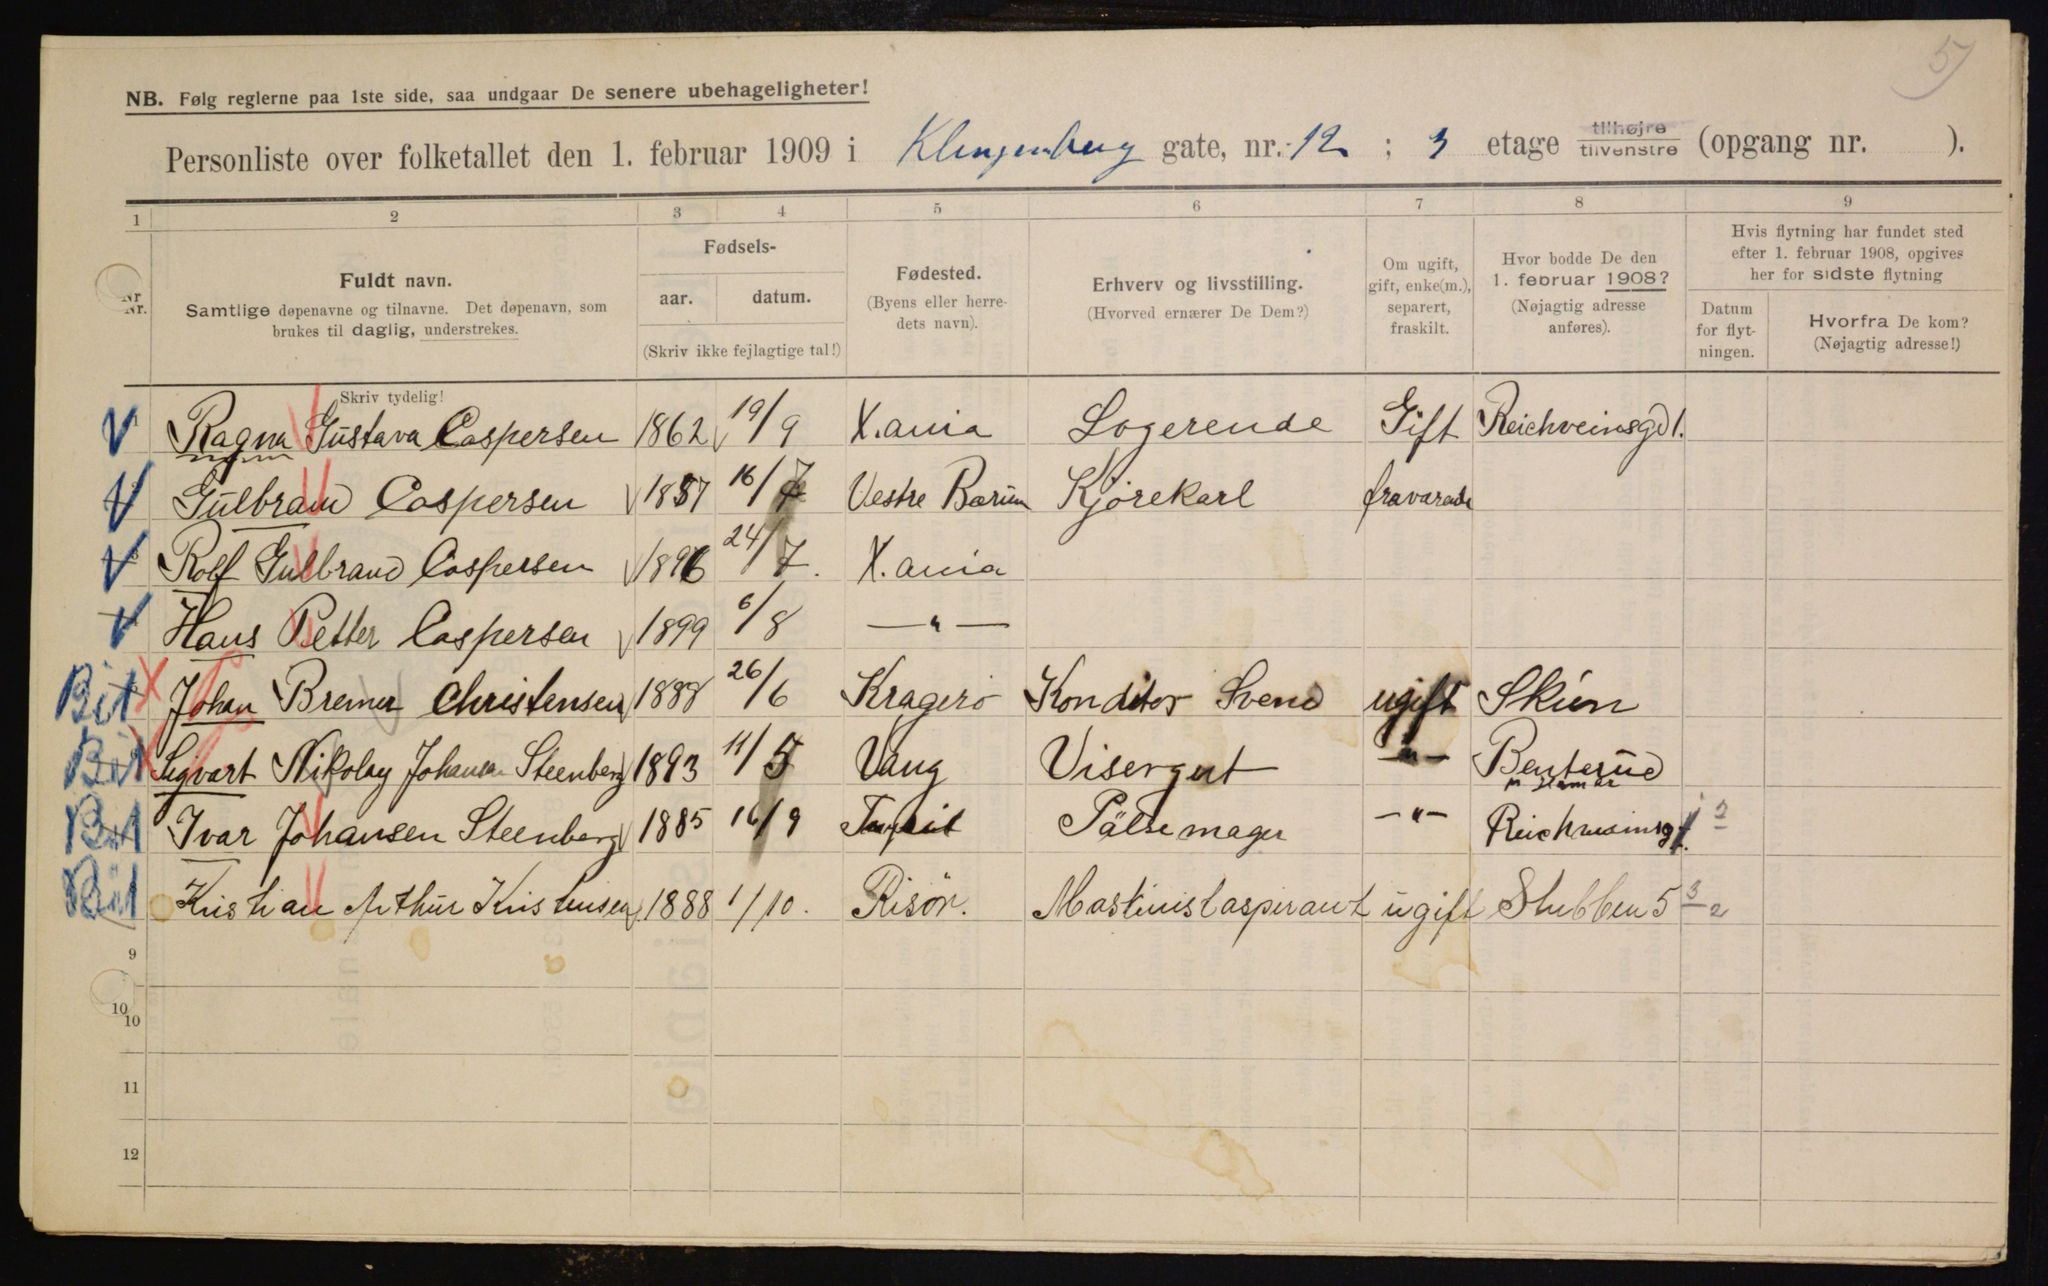 5
NB. Følg reglerne paa 1ste side, saa undgaar De senere ubehageligheter!
Personliste over folketallet den 1. februar 1909 i Klingenberg gate, nr. 12 ; 3 etage tilhøjre tilvenstre (opgang nr. ).
1 2 3 4 5 6 7 8 9
Nr. Nr.
Fuldt navn.
Samtlige døpenavne og tilnavne. Det døpenavn, som
brukes til daglig, understrekes.
Skriv tydelig!
Fødsels-
aar. datum.
(Skriv ikke fejlagtige tal!)
Fødested.
(Byens eller herre-
dets navn).
Erhverv og livsstilling.
(Hvorved ernærer De Dem?)
Om ugift,
gift, enke(m.),
separert,
fraskilt.
Hvor bodde De den
1. februar 1908?
(Nøjagtig adresse
anføres).
Hvis flytning har fundet sted
efter 1. februar 1908, opgives
her for sidste flytning
Datum
for flyt-
ningen.
Hvorfra De kom?
(Nøjagtig adresse!)
Ragna Gustava Caspersen 1862 19/9 X.ania Logerende Gift Reichveinsgd 1.
Gulbrand Caspersen 1857 16/7 Vestre Bærum Kjørekarl fraværende
Rolf Gulbrand Caspersen 1896 24/7. X.ania
Hans Petter Caspersen 1899 6/8 — " —
Johan Bremer Christensen 1888 26/6 Kragerö Konditor Svend ugift Skien
Sigvart Nikolay Johansen Steenberg 1893 11/5 Vang Visergut — " — Benterud
Ivar Johansen Steenberg 1885 16/9 Pølsemager — " — Reichveinsgt. 1
Kristian Arthur Kristensen 1888 1/10. Risör. Maskinistaspirant ugift Stubben 5 3/2
9
10
10
11
12